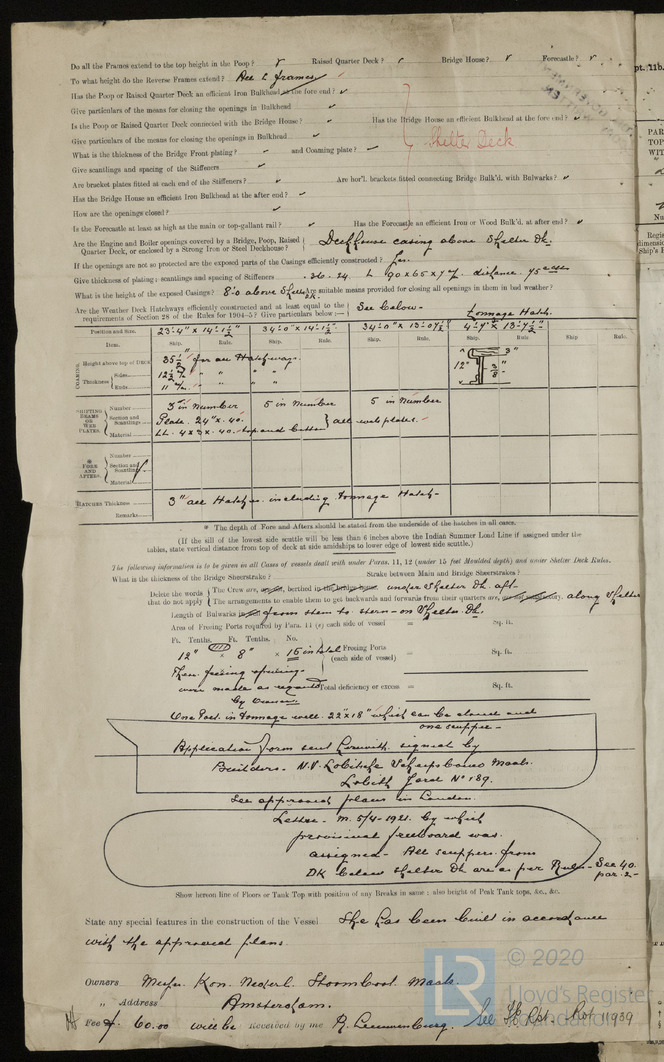 Do all the Frames extend to the top height in the Poop? ✓ Raised Quarter Deck? ✓ Bridge House? ✓ Forecastle? ✓
To what height do the Reverse Frames extend? All L frames
Has the Poop or Raised Quarter Deck an efficient Iron Bulkhead at the fore end? ✓
Give particulars of the means for closing the openings in Bulkhead ✓
Is the Poop or Raised Quarter Deck connected with the Bridge House? ✓ Has the Bridge House an efficient Bulkhead at the fore end? ✓
Give particulars of the means for closing the openings in Bulkhead ✓
Shelter Deck
What is the thickness of the Bridge Front plating? ✓ and Coaming plate? ✓
Give scantlings and spacing of the Stiffeners ✓
Are bracket plates fitted at each end of the Stiffeners? ✓ Are hor'l. brackets fitted connecting Bridge Bulk'd. with Bulwarks? ✓
Has the Bridge House an efficient Iron Bulkhead at the after end? ✓
How are the openings closed? ✓
Is the Forecastle at least as high as the main or top-gallant rail? ✓ Has the Forecastle an efficient Iron or Wood Bulk'd. at after end? ✓
Are the Engine and Boiler openings covered by a Bridge, Poop, Raised Quarter Deck, or enclosed by a Strong Iron or Steel Deckhouse? Deckhouse casing above Shelter Dk.
If the openings are not so protected are the exposed parts of the Casings efficiently constructed? Yes.
Give thickness of plating; scantlings and spacing of Stiffeners .30-.24. L 90x65x7 m/m distance. 75
What is the height of the exposed Casings? 8'0 above Shelter DK. Are suitable means provided for closing all openings in them in bad weather?
Are the Weather Deck Hatchways efficiently constructed and at least equal to the requirements of Section 28 of the Rules for 1904-5? Give particulars below:— See below - tonnage Hatch.
Position and Size. 23'-4" x 14'-1½" 34'-0" x 14'-1½" 34'-0" x 13'-0½" 4'-4" x 13'-7½"
Item. Ship. Rule. Ship. Rule. Ship. Rule. Ship. Rule. Ship. Rule.
COAMING
Height above top of DECK 35½" for all Hatchways. 3"
Thickness Sides 12½ m/m " " " " 12" 3/8"
Ends 11 m/m " " " "
SHIFTING BEAMS OR WEB PLATES.
Number 3 in number 5 in number 5 in number
Section and Scantlings Plate 24" x .40 all web plates.
Material LL 4 x 3 x .40 top and bottom
FORE AND AFTERS.
Number
Section and Scantlings
Material
HATCHES Thickness 3" all Hatches including tonnage Hatch -
Remarks
* The depth of Fore and Afters should be stated from the underside of the hatches in all cases.
(If the sill of the lowest side scuttle will be less than 6 inches above the Indian Summer Load Line if assigned under the
tables, state vertical distance from top of deck at side amidships to lower edge of lowest side scuttle.)
The following information is to be given in all Cases of vessels dealt with under Paras. 11, 12 (under 15 feet Moulded depth) and under Shelter Deck Rules.
What is the thickness of the Bridge Sheerstrake? Strake between Main and Bridge Sheerstrakes?
Delete the words that do not apply
The Crew are, are not, berthed in the bridge house. under Shelter Dk aft.
The arrangements to enable them to get backwards and forwards from their quarters are, are not, satisfactory. along Shelter
Length of Bulwarks from stem to stern - on Shelter Dk.
Area of Freeing Ports required by Para. 11 (e) each side of vessel = Sq. ft.
Ft. Tenths. Ft. Tenths. No.
12" x 8" x 15 in total Freeing Ports (each side of vessel) = Sq. ft.
These freeing openings
were made as required Total deficiency or excess = Sq. ft.
by Owners.
One Port in tonnage well. 22"x18" which can be closed and
one scupper -
Application form sent herewith signed by
Builders - N.V. Lobithsche Scheepsbouw Maats.
Lobith Yard No 189.
See approved plans in London.
Letter - M. 5/4-1921. by which
provisional freeboard was
assigned - All scuppers from
DK below shelter Dk are as per Rules - See 40.
par. 2 -
Show hereon line of Floors or Tank Top with position of any Breaks in same; also height of Peak Tank tops, &c., &c.
State any special features in the construction of the Vessel She has been built in accordance
with the approved plans
Owners Messrs. Kon. Nederl. Stoomboot Maats.
" Address Amsterdam.
Fee £ 60.00 will be Received by me R. Leeuwenburg. See Rpt. Rot 11939
© 2020
LR
Lloyd's Register
Foundation
pt. 11b.
PAR
TOP
WIT
Nu
Regis
dimensio
Ship's F